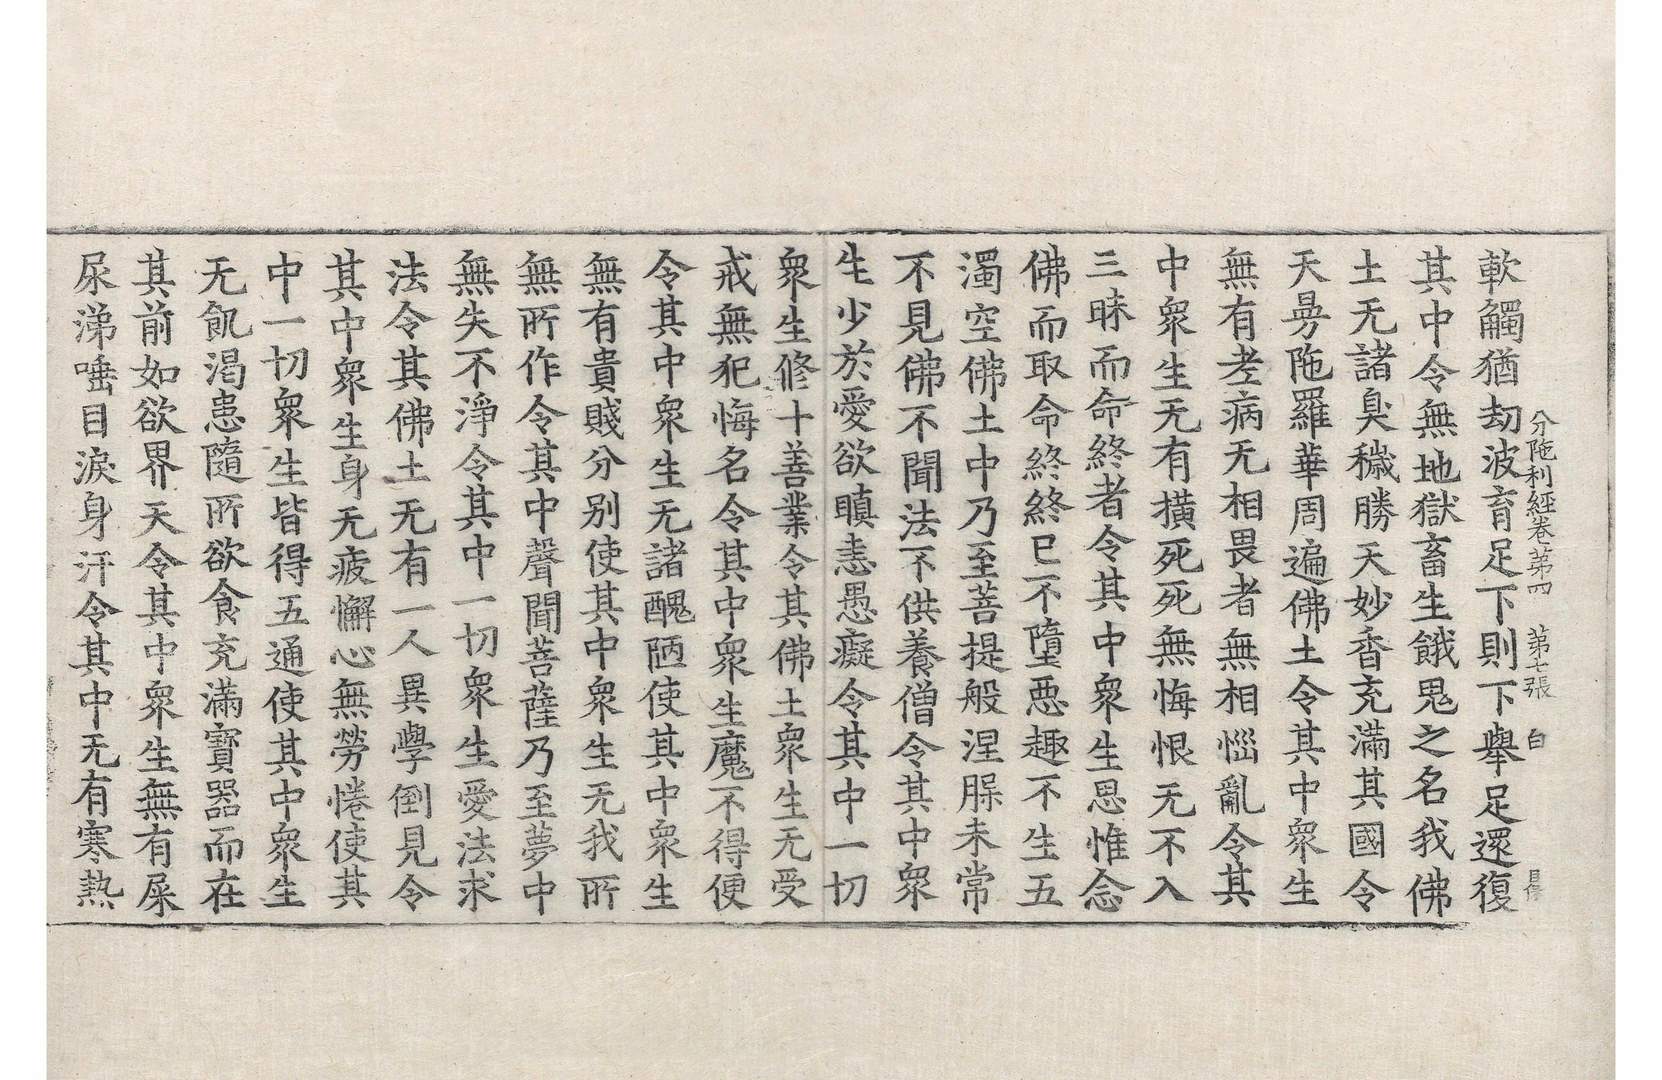 分陁利經卷第四　第七張　白
軟觸猶劫波育足下則下舉足還復
其中令無地獄畜生餓鬼之名我佛
土无諸臭穢勝天妙香充滿其國令
天曼陁羅華周遍佛土令其中衆生
無有老病无相畏者無相惱亂令其
中衆生无有橫死死無悔恨无不入
三昧而命終者令其中衆生思惟念
佛而取命終終已不墮惡趣不生五
濁空佛土中乃至菩提般涅槃未常
不見佛不聞法不供養僧令其中衆
生少於愛欲瞋恚愚癡令其中一切
衆生修十善業令其佛土衆生无受
戒無犯悔名令其中衆生魔不得便
令其中衆生无諸醜陋使其中衆生
無有貴賤分別使其中衆生无我所
無所作令其中聲聞菩薩乃至夢中
無失不淨令其中一切衆生愛法求
法令其佛土无有一人異學倒見令
其中衆生身无疲懈心無勞惓使其
中一切衆生皆得五通使其中衆生
无飢渴恚隨所欲食充滿寶器而在
其前如欲界天令其中衆生無有屎
尿涕唾目淚身汗令其中无有寒熱